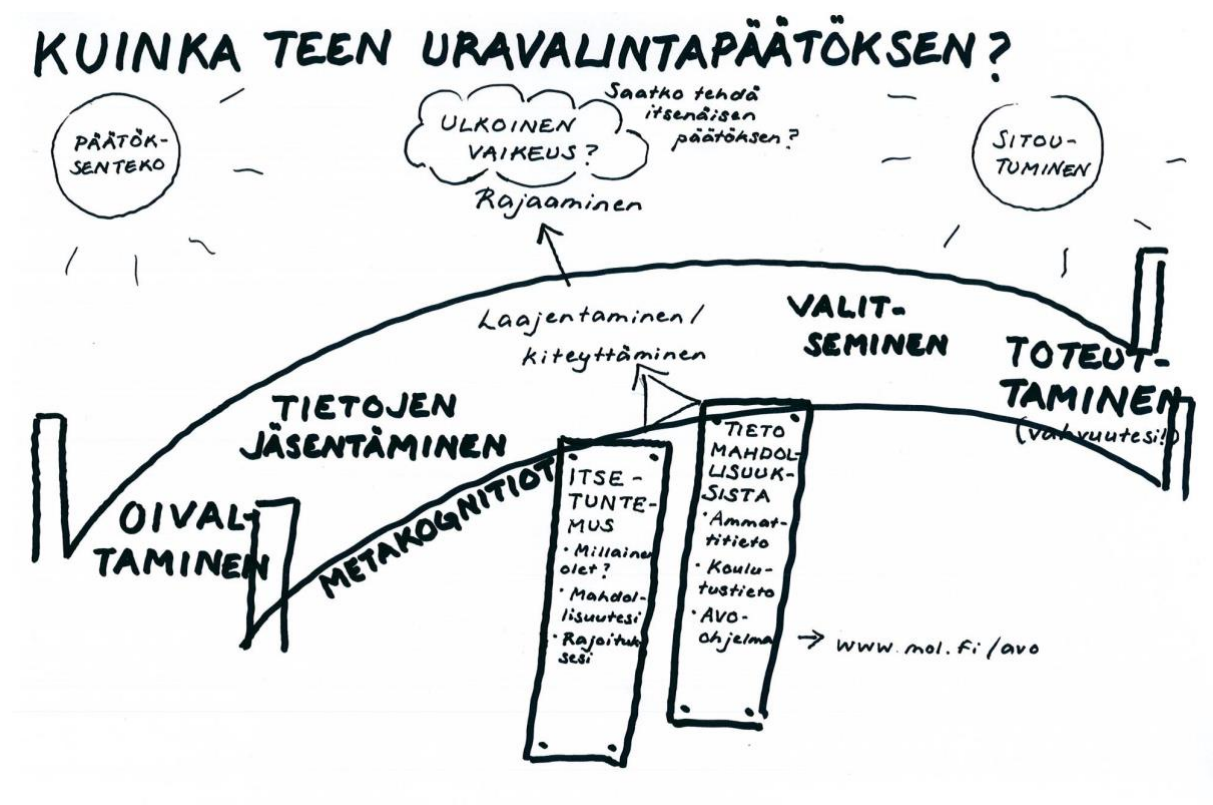 KUINKA TEEN URAVALINTAPÄÄTÖKSEN?
PÄÄTÖK-
SENTEKO
ULKOINEN
VAIKEUS?
Saatko tehdä
itsenäisen
päätöksen?
SITOU-
TUMINEN
Rajaaminen
Laajentaminen/
kiteyttäminen
VALIT-
SEMINEN
TOTEUT-
TAMINEN
(vahvuutesi!)
TIETOJEN
JÄSENTÄMINEN
OIVAL-
TAMINEN
METAKOGNITIOT
ITSE-
TUNTE-
MUS
• Millainen
olet?
• Mahdol-
lisuutesi
• Rajoituk-
sesi
TIETO
MAHDOL-
LISUUK-
SISTA
• Ammat-
titieto
• Koulu-
tustieto
• AVO-
ohjelma
→ www.mol.fi/avo